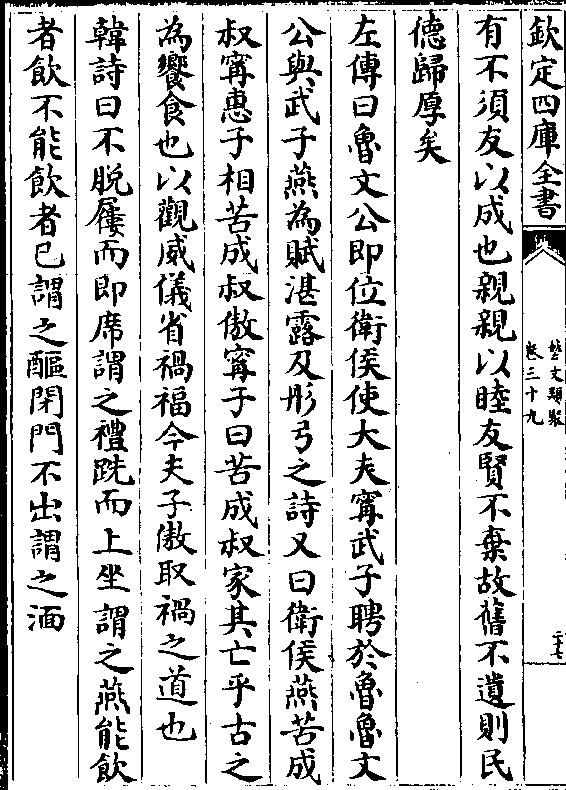 欽定四庫全書
藝文類聚
卷三十九
二十七
有不須友以成也親親以睦友賢不棄故舊不遺則民
德歸厚矣
左傳曰魯文公即位衛侯使大夫甯武子聘於魯魯文
公與武子燕為賦湛露及彤弓之詩又曰衛侯燕苦成
叔甯惠子相苦成叔傲甯子曰苦成叔家其亡乎古之
為饗食也以觀威儀省禍福今夫子傲取禍之道也
韓詩曰不脱屨而即席謂之禮跣而上坐謂之燕能飲
者飲不能飲者已謂之醧閉門不出謂之湎